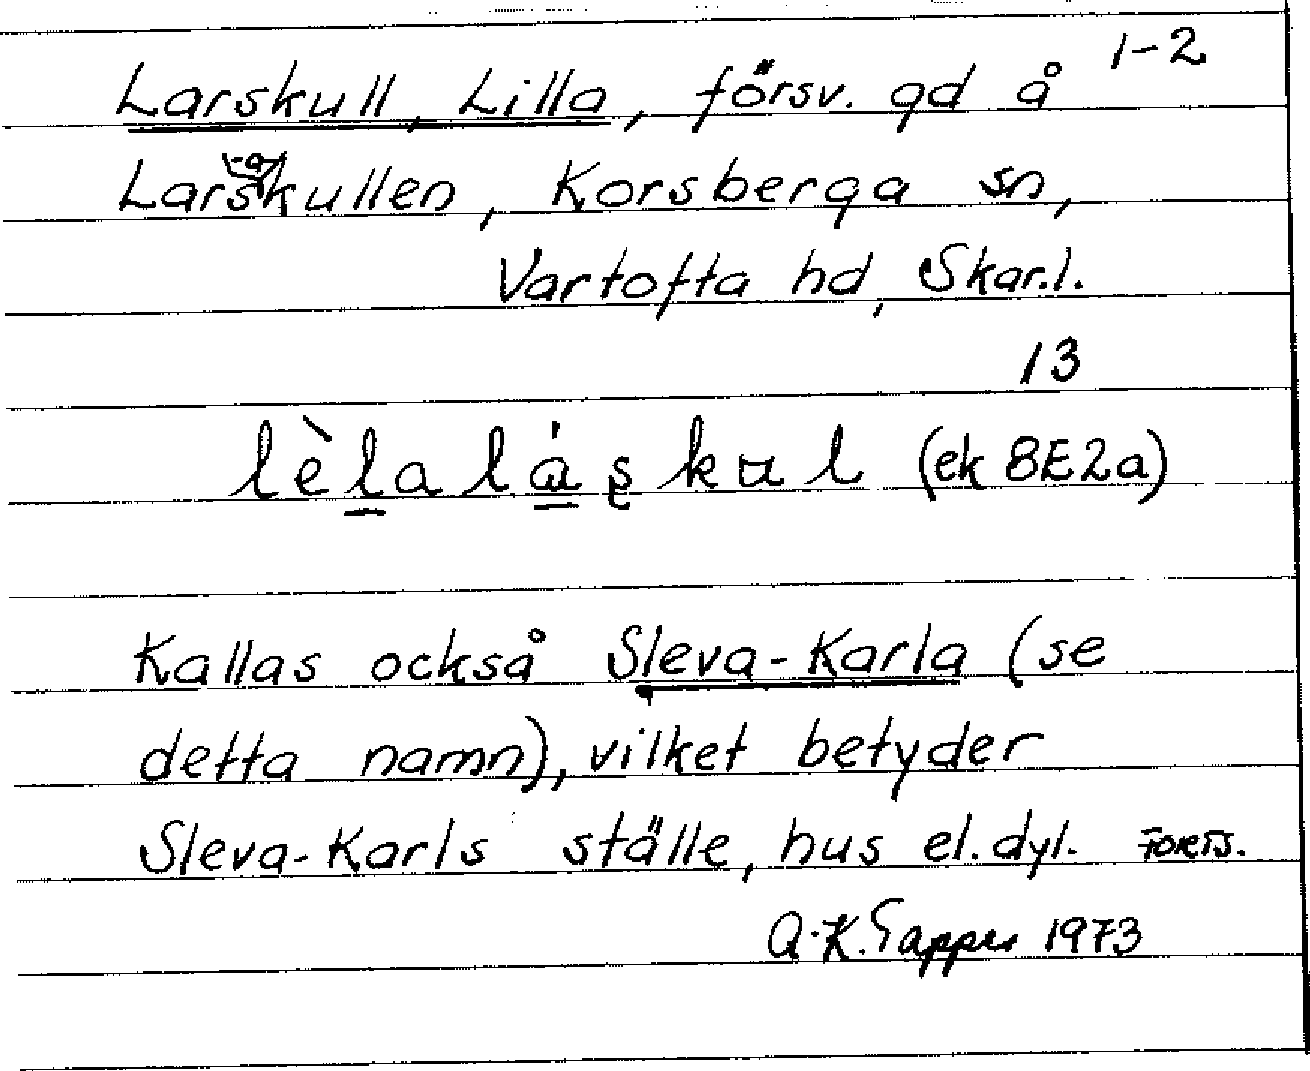 1-2
Larskull, Lilla, försv. gd å
Larskullen, Korsberga sn,
Vartofta hd, Skar.l.
13
lèla láskul (ek 8E2a)
Kallas också Sleva-Karla (se
detta namn), vilket betyder
Sleva-Karls ställe, hus el. dyl. FORTS.
A-K. 1973